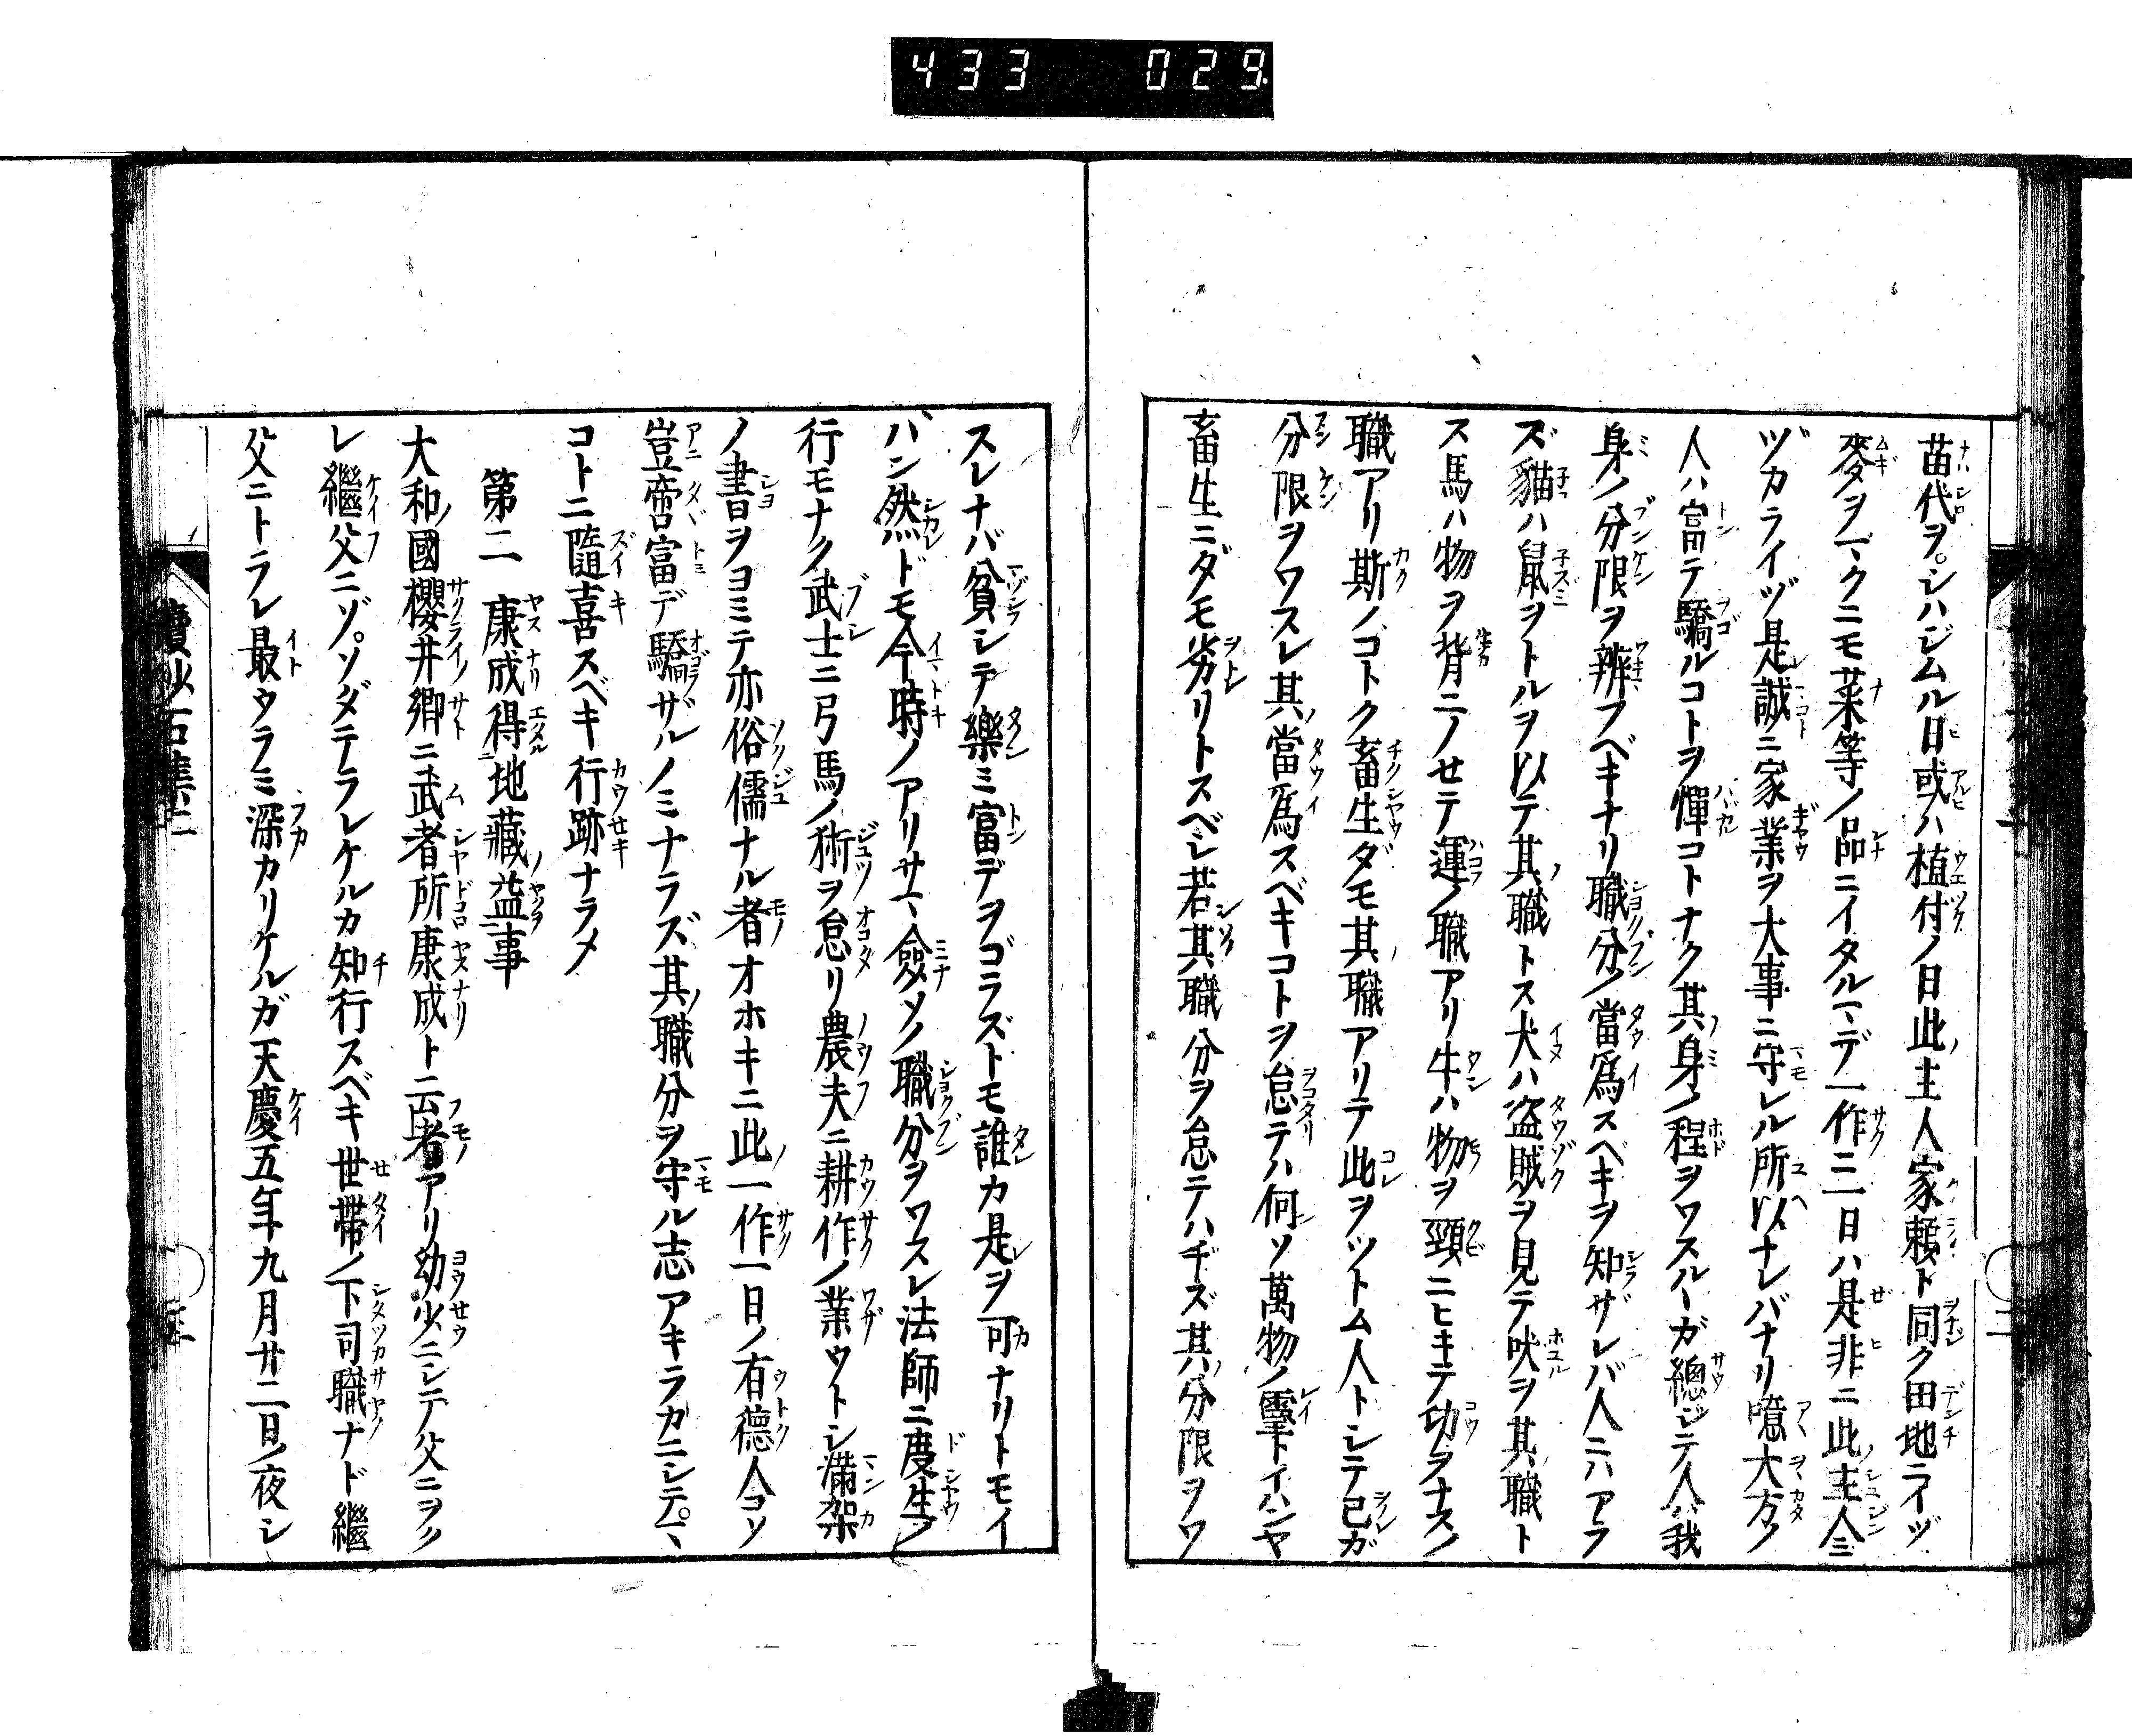 433 029
苗代ヲ。シハジムル日或ハ植付ノ日此主人家頼ト同ク田地ニイヅ
麥ヲマクニモ菜等ノ品ニイタルマデ一作ニ一日ハ是非ニ此主人ミ
ヅカライヅ是誠ニ家業ヲ大事ニ守レル所以ナレバナリ噫大方ノ
人ハ富テ驕ルコトヲ憚コトナク其身ノ程ヲワスルヿガ總ジテ人ハ我
身ノ分限ヲ辨フベキナリ職分ノ當爲スベキヲ知ザレバ人ニハアラ
ズ貓ハ鼠ヲトルヲ以テ其職トス犬ハ盗賊ヲ見テ吠ヲ其職ト
ス馬ハ物ヲ背ニノせテ運ノ職アリ牛ハ物ヲ頸ニヒキテ功ヲナスノ
職アリ斯ノコトク畜生ダモ其職アリテ此ヲツトム人トシテ己ガ
分限ヲワスレ其當爲スベキコトヲ怠テハ何ソ萬物ノ靈トイハンヤ
畜生ニダモ劣リトスベシ若其職分ヲ怠テハヂズ其分限ヲワ
スレナバ貧シテ樂ミ富デヲゴラズトモ誰カ是ヲ可ナリトモイ
バン然ドモ今時ノアリサマ僉ソノ職分ヲワスレ法師ニ度生ノ
行モナク武士ニ弓馬ノ術ヲ怠リ農夫ニ耕作ノ業ウトシ滿架
ノ書ヲヨミテ亦俗儒ナル者オホキニ此一作一日ノ有德人コソ
豈啻富デ驕ザルノミナラズ其職分ヲ守ル志アキラカニシテ。マ
コトニ隨喜スベキ行跡ナラメ
第二 康成得地藏益事
大和國櫻井郷ニ武者所康成ト云者アリ幼少ニシテ父ニヲク
レ繼父ニゾ。ソダテラレケルカ知行スベキ世帶ノ下司職ナド繼
父ニトラレ最ウラミ深カリケルガ天慶五年九月廿二日ノ夜シ
續沙石集二